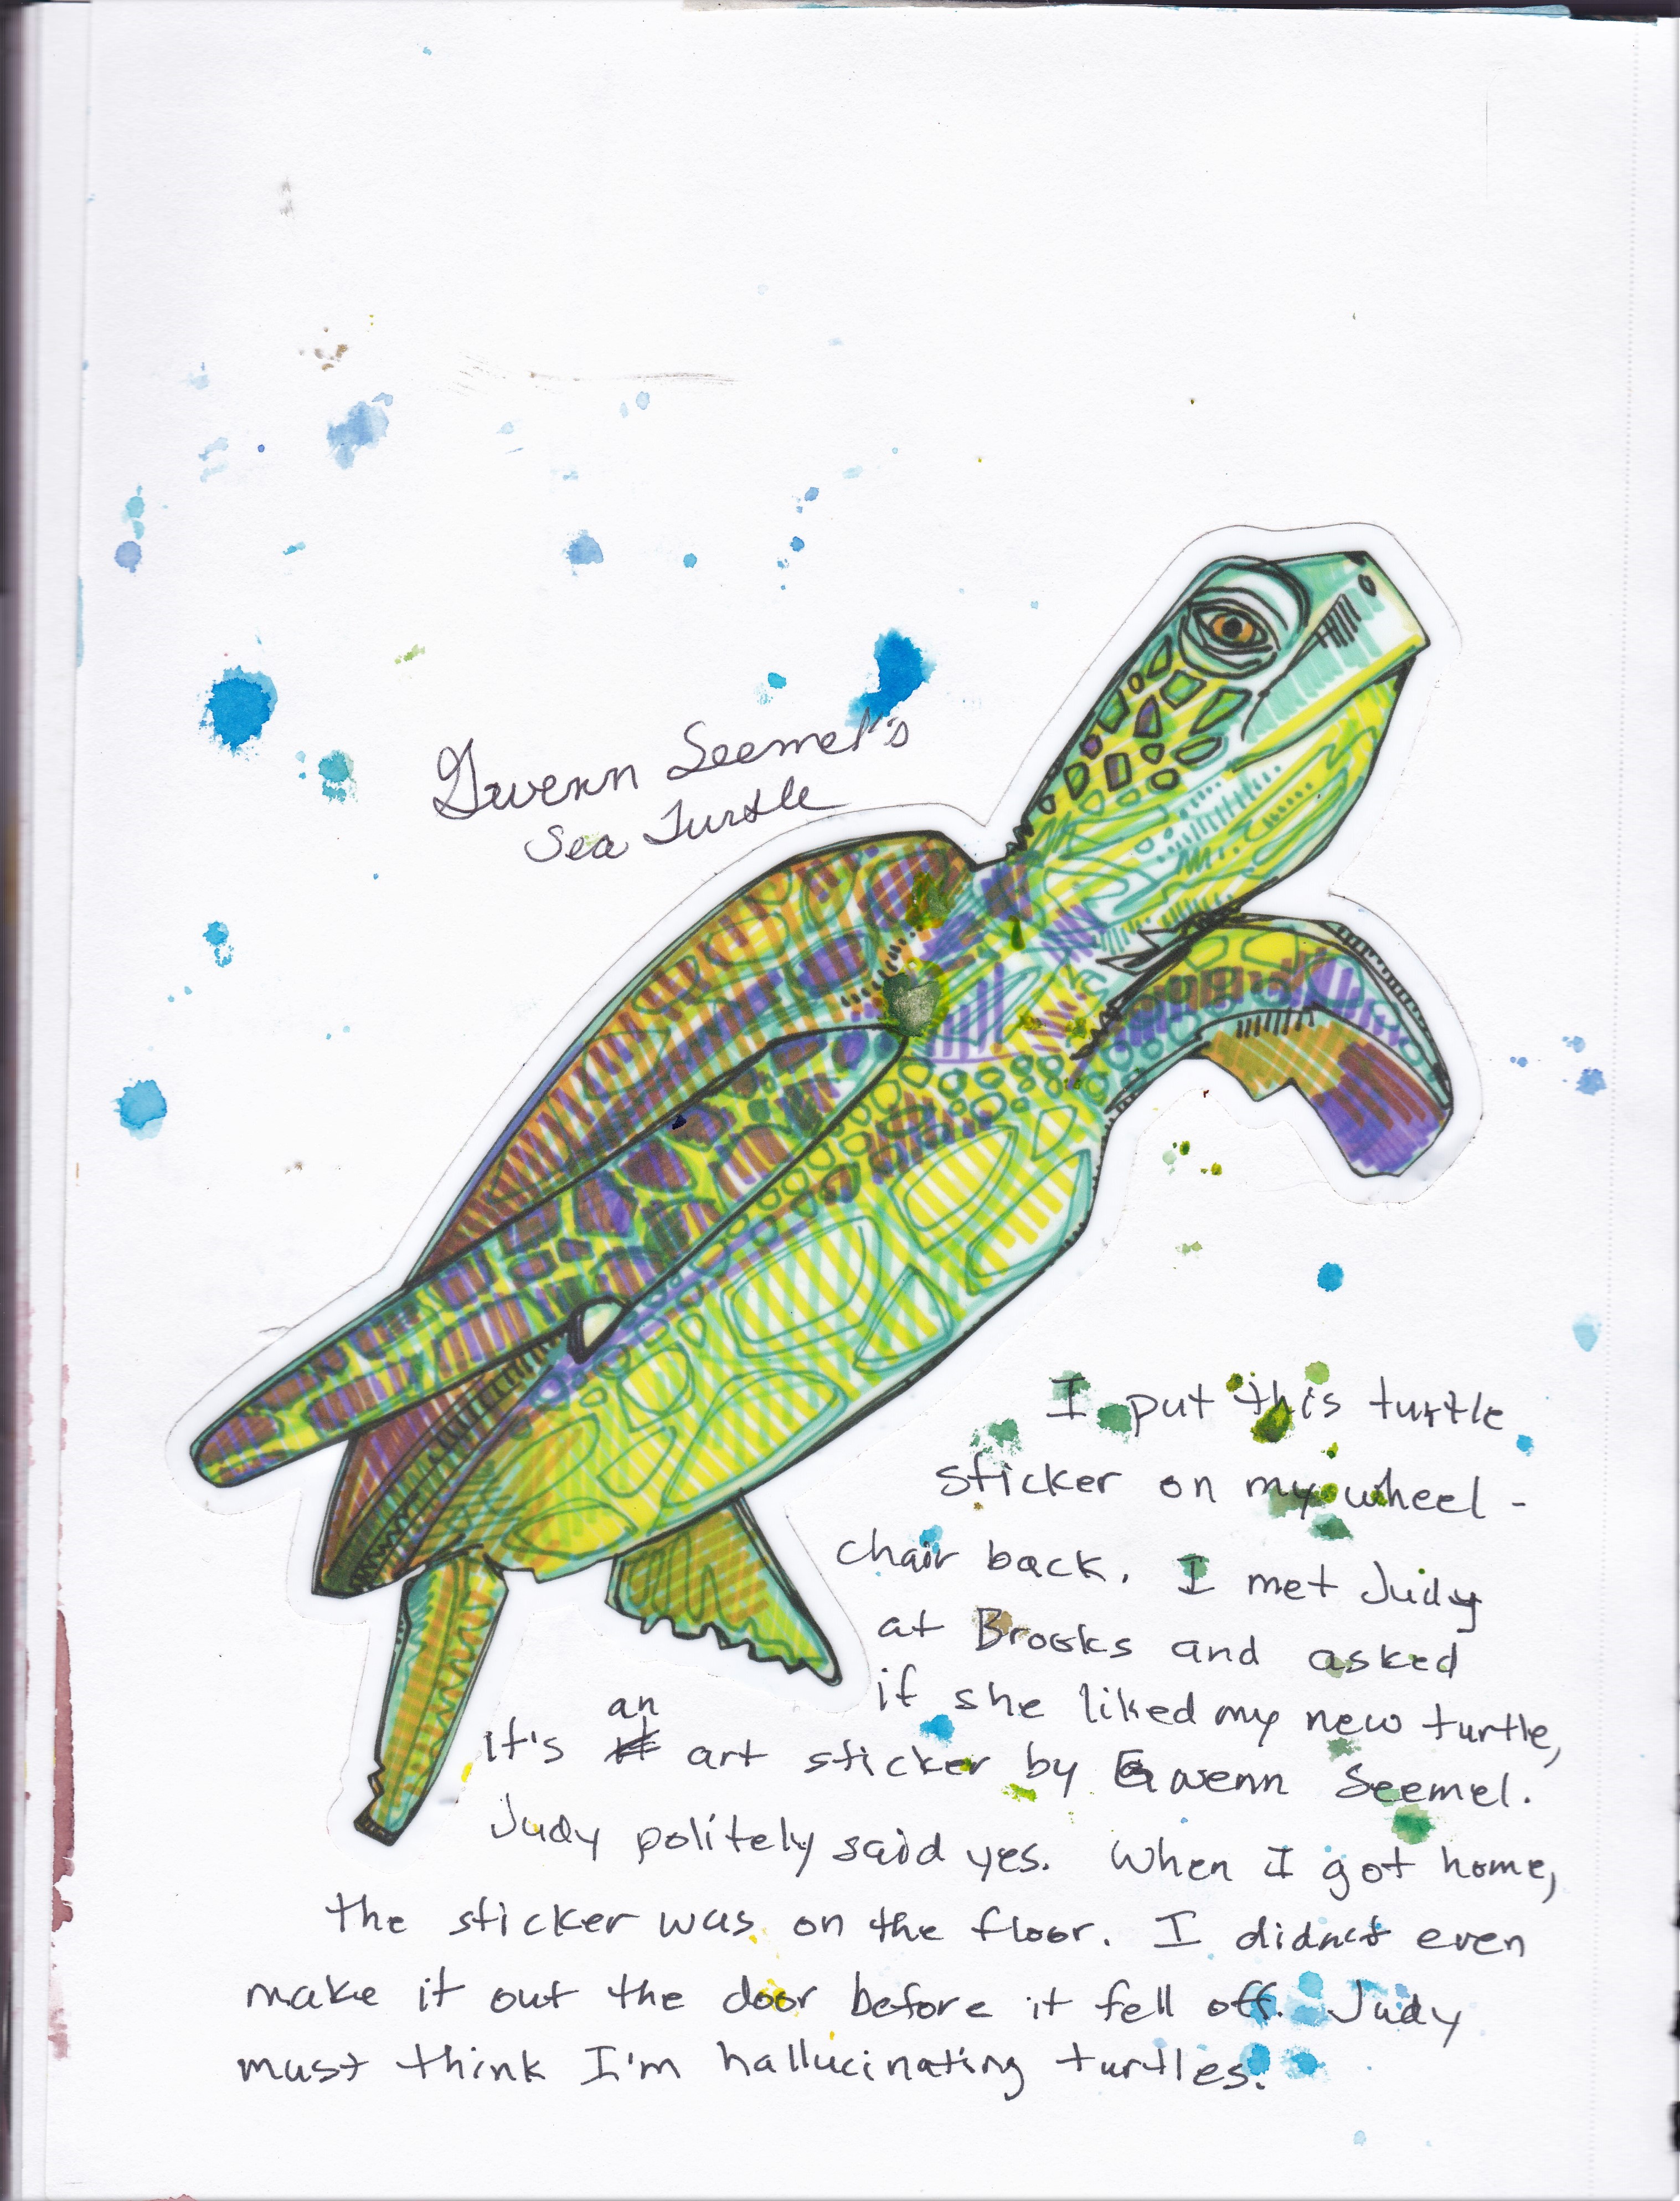 Gwenn Seemel's
Sea Turtle
I put this turtle
sticker on my wheel-
chair back. I met Judy
at Brooks and asked
if she liked my new turtle,
it's an art sticker by Gwenn Seemel.
Judy politely said yes. When I got home,
the sticker was on the floor. I didn't even
make it out the door before it fell off. Judy
must think I'm hallucinating turtles.